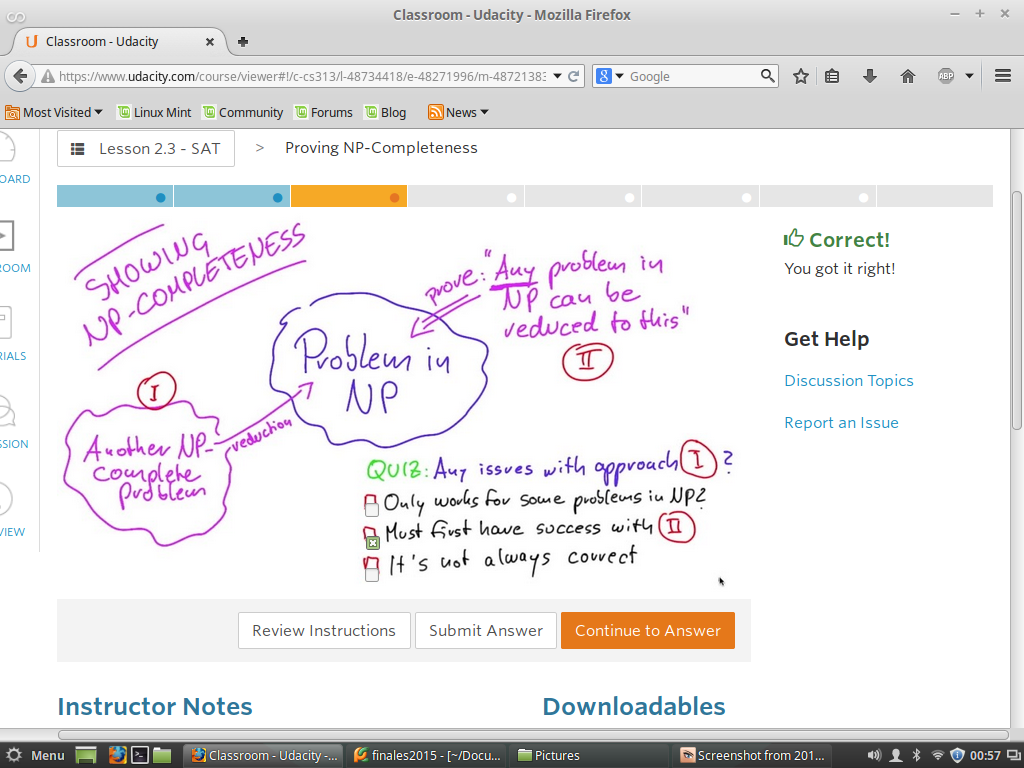 Classroom - Udacity - Mozilla Firefox
Classroom - Udacity
https://www.udacity.com/course/viewer#!/c-cs313/l-48734418/e-48271996/m-4872138
Google
ABP
Most Visited Linux Mint Community Forums Blog News
Lesson 2.3 - SAT > Proving NP-Completeness
OARD
ROOM
RIALS
SSION
VIEW
SHOWING
NP-COMPLETENESS
prove: "Any problem in
NP can be
reduced to this"
II
Problem in
NP
I
Another NP-
Complete
Problem
reduction
QUIZ: Any issues with approach I ?
Only works for some problems in NP?
Must first have success with II
It's not always correct
Correct!
You got it right!
Get Help
Discussion Topics
Report an Issue
Review Instructions Submit Answer Continue to Answer
Instructor Notes Downloadables
Menu Classroom - Udacity -... finales2015 - [~/Docu... Pictures Screenshot from 201... 00:57